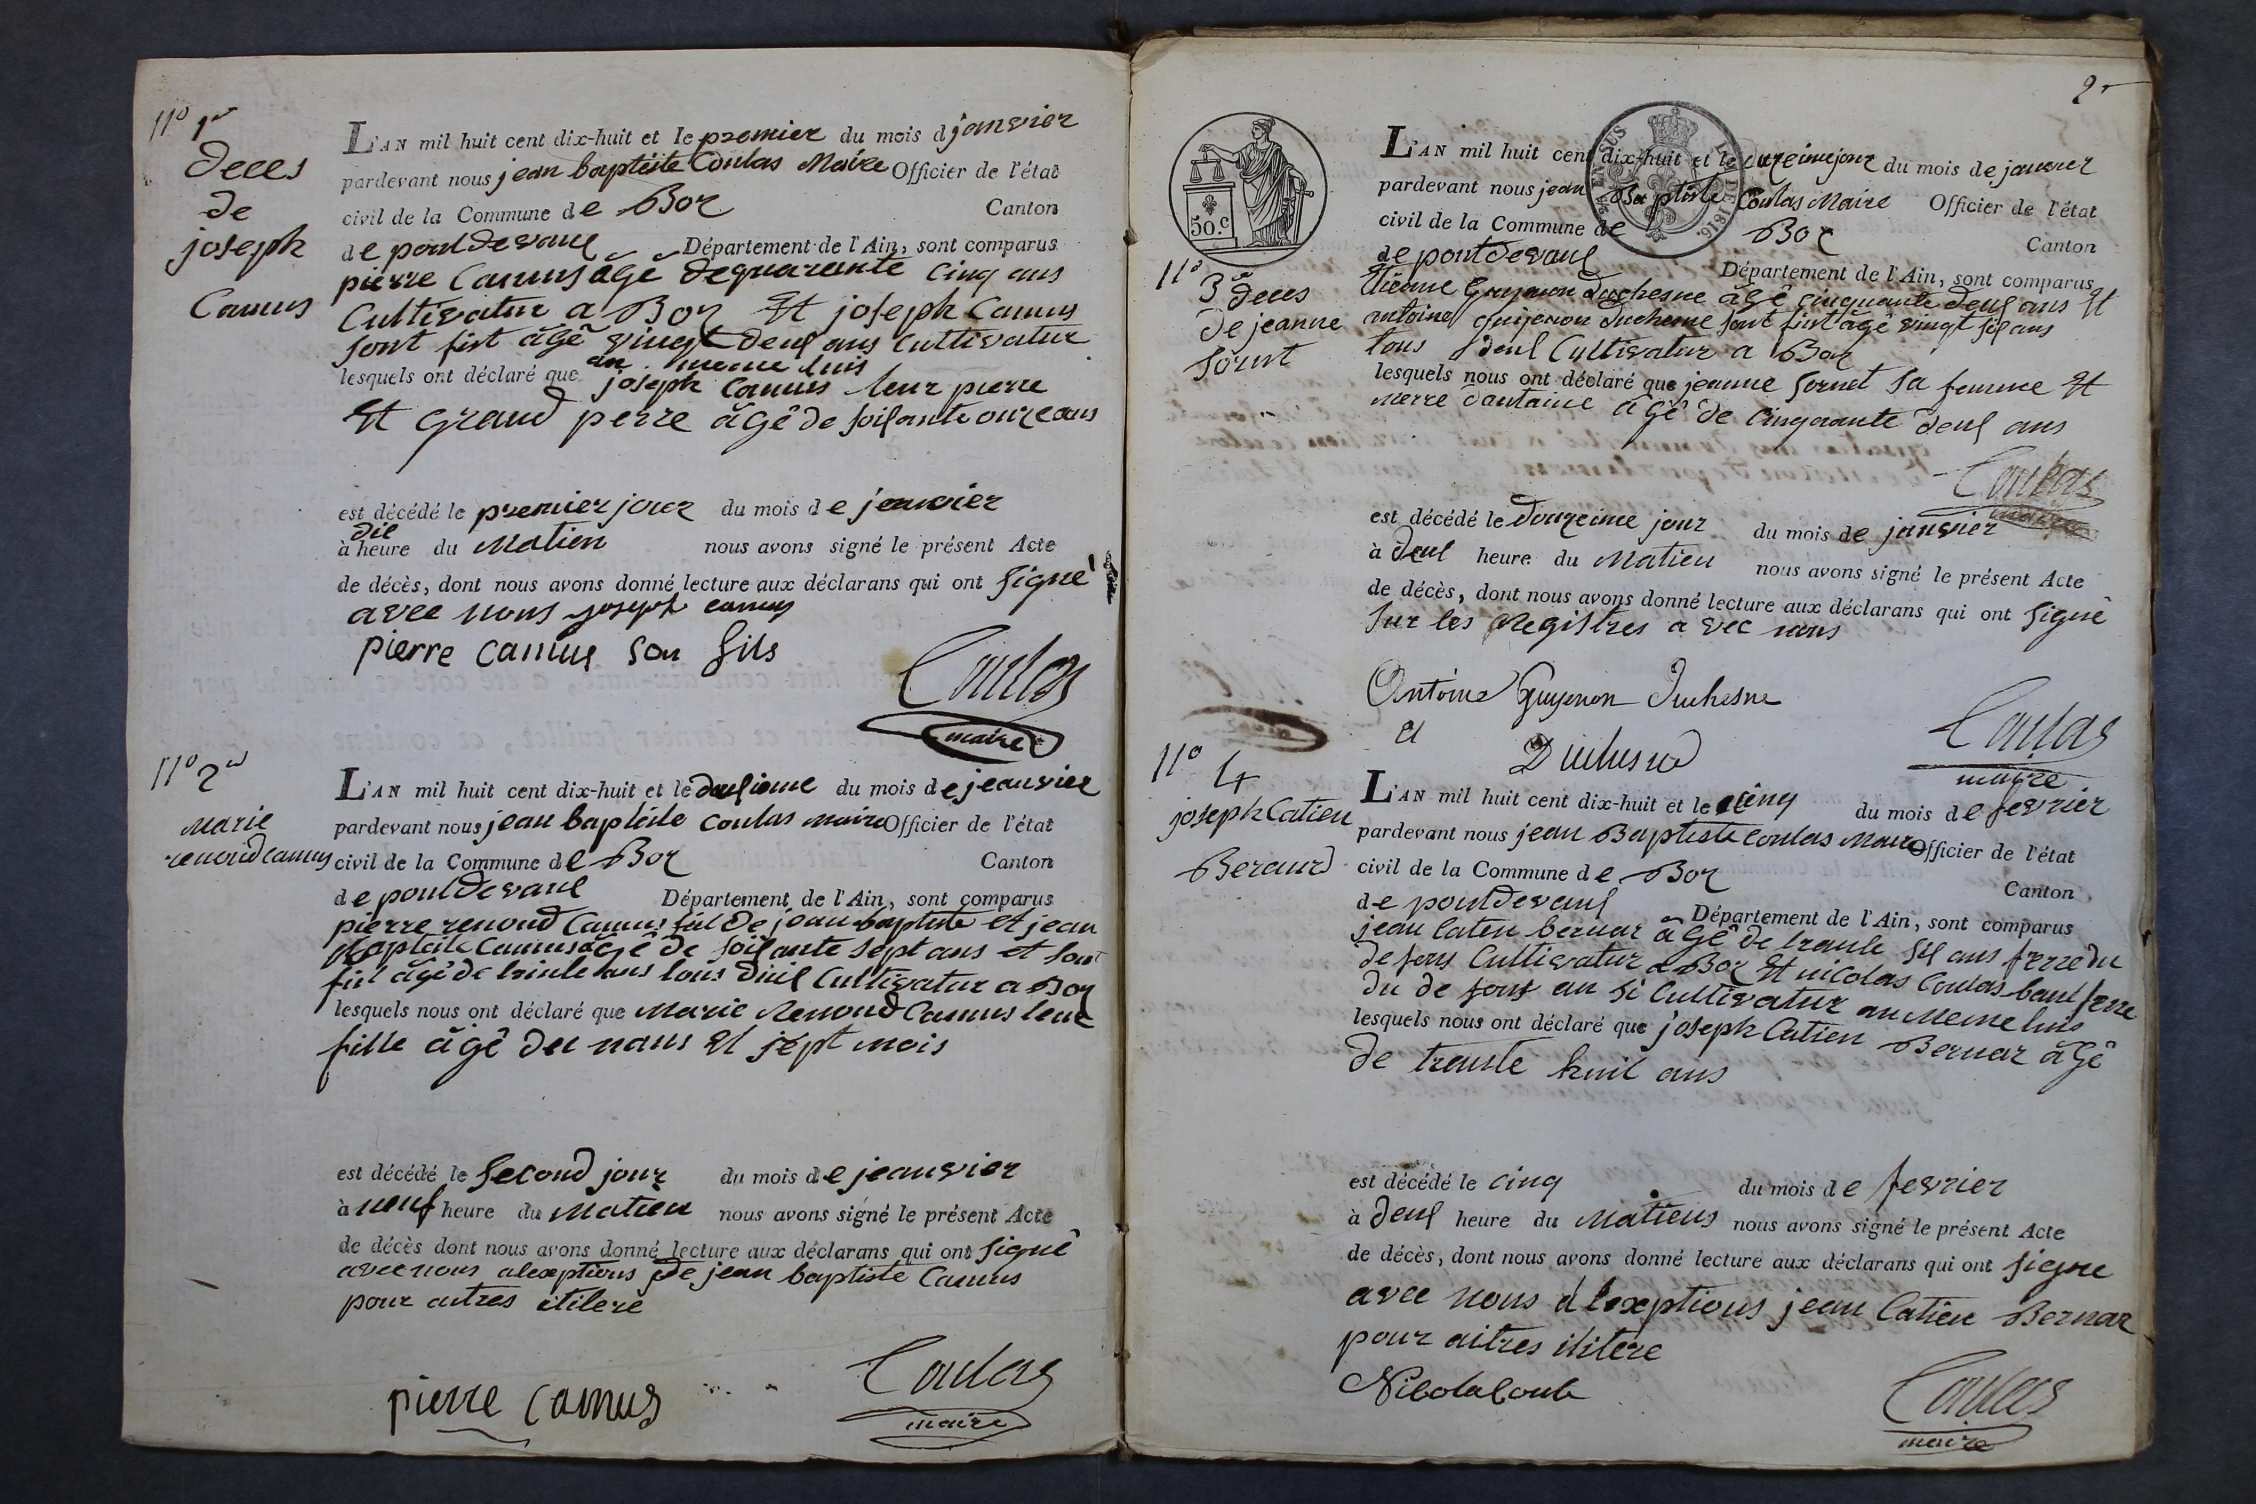 no 1er
Deces
de
joseph
Camus
L'AN mil huit cent dix-huit et le premier du mois d janvier
pardevant nous jean baptiste Coulas Maire Officier de l'état
civil de la Commune de Boz Canton
de pontdevaux Département de l'Ain, sont comparus
pierre Camus âgé de quarante cinq ans
Cultivatur a Boz Et joseph Camus
sont fist âgé vingt deux ans Cultivatur
au meme luis
lesquels ont déclaré que joseph Camus leur pierre
Et Grand perre âgé de soixante onze ans
est décédé le premier jour du mois de jenvier
à dix heure du Matien nous avons signé le présent Acte
de décès, dont nous avons donné lecture aux déclarans qui ont signé
avec nous joseph camus
pierre camus son fils
Coulas
maire
no 2
Marie
renoud camus
L'AN mil huit cent dix-huit et le deusieme du mois de jeanvier
pardevant nous jean baptiste Coulas maire Officier de l'état
civil de la Commune de Boz Canton
de pontdevaux Département de l'Ain, sont comparus
pierre renoud Camus fiil de jean baptiste et jean
Baptiste Camus âgé de soixante sept ans et sont
fiil âgé de trinte ans tous Cultivatur a Boz
lesquels nous ont déclaré que Marie Renoud Camus leur
fille âgé de nans Et sépt mois
est décédé le Second jour du mois de jeanvier
à neuf heure du Matien nous avons signé le présent Acte
de décès dont nous avons donné lecture aux déclarans qui ont signé
avec nous alexptions de jean baptiste Camus
pour autres itilere
pierre camus
Coulas
maire
2
50.c
EN SUS
L. DE 1816.
no 3
Deces
de jeanne
Sornet
L'AN mil huit cent dix-huit et le jour du mois de janvier
pardevant nous jean Baptiste Coulas Maire Officier de l'état
civil de la Commune de Boz Canton
de pontdevaux Département de l'Ain, sont comparus
Etienne Guyenon Duchesne âgé cinquante deux ans Et
antoine Guyenon Duchesne sont fist âgé vingt six ans
tous deux Cultivatur a Boz
lesquels nous ont déclaré que jeanne Sornet sa femme Et
merre dantoine âgé de Cinquante deux ans
Coulas
maire
est décédé le Douzeime jour du mois de janvier
à deux heure du Matien nous avons signé le présent Acte
de décès, dont nous avons donné lecture aux déclarans qui ont signé
sur les Registres avec nous
Antoine Guyenon Duchesne
et
Duchesne
Coulas
maire
no 4
joseph Catien
Beraurd
L'AN mil huit cent dix-huit et le cinq du mois de fevrier
pardevant nous jean Baptiste Coulas Maire Officier de l'état
civil de la Commune de Boz Canton
de pontdevaux Département de l'Ain, sont comparus
jean Caten bernar âgé de trante six ans frerre du
defons Cultivatur a Boz Et nicolas Coulas baux frerre
du de fons au si Cultivatur au Meme luis
lesquels nous ont déclaré que joseph Catien Bernar âgé
de trante huit ans
est décédé le cinq du mois de fevrier
à deux heure du Matiens nous avons signé le présent Acte
de décès, dont nous avons donné lecture aux déclarans qui ont signe
avec nous alexptions jean Catien Bernar
pour aitres ilitere
Nicola Coula
Coulas
maire